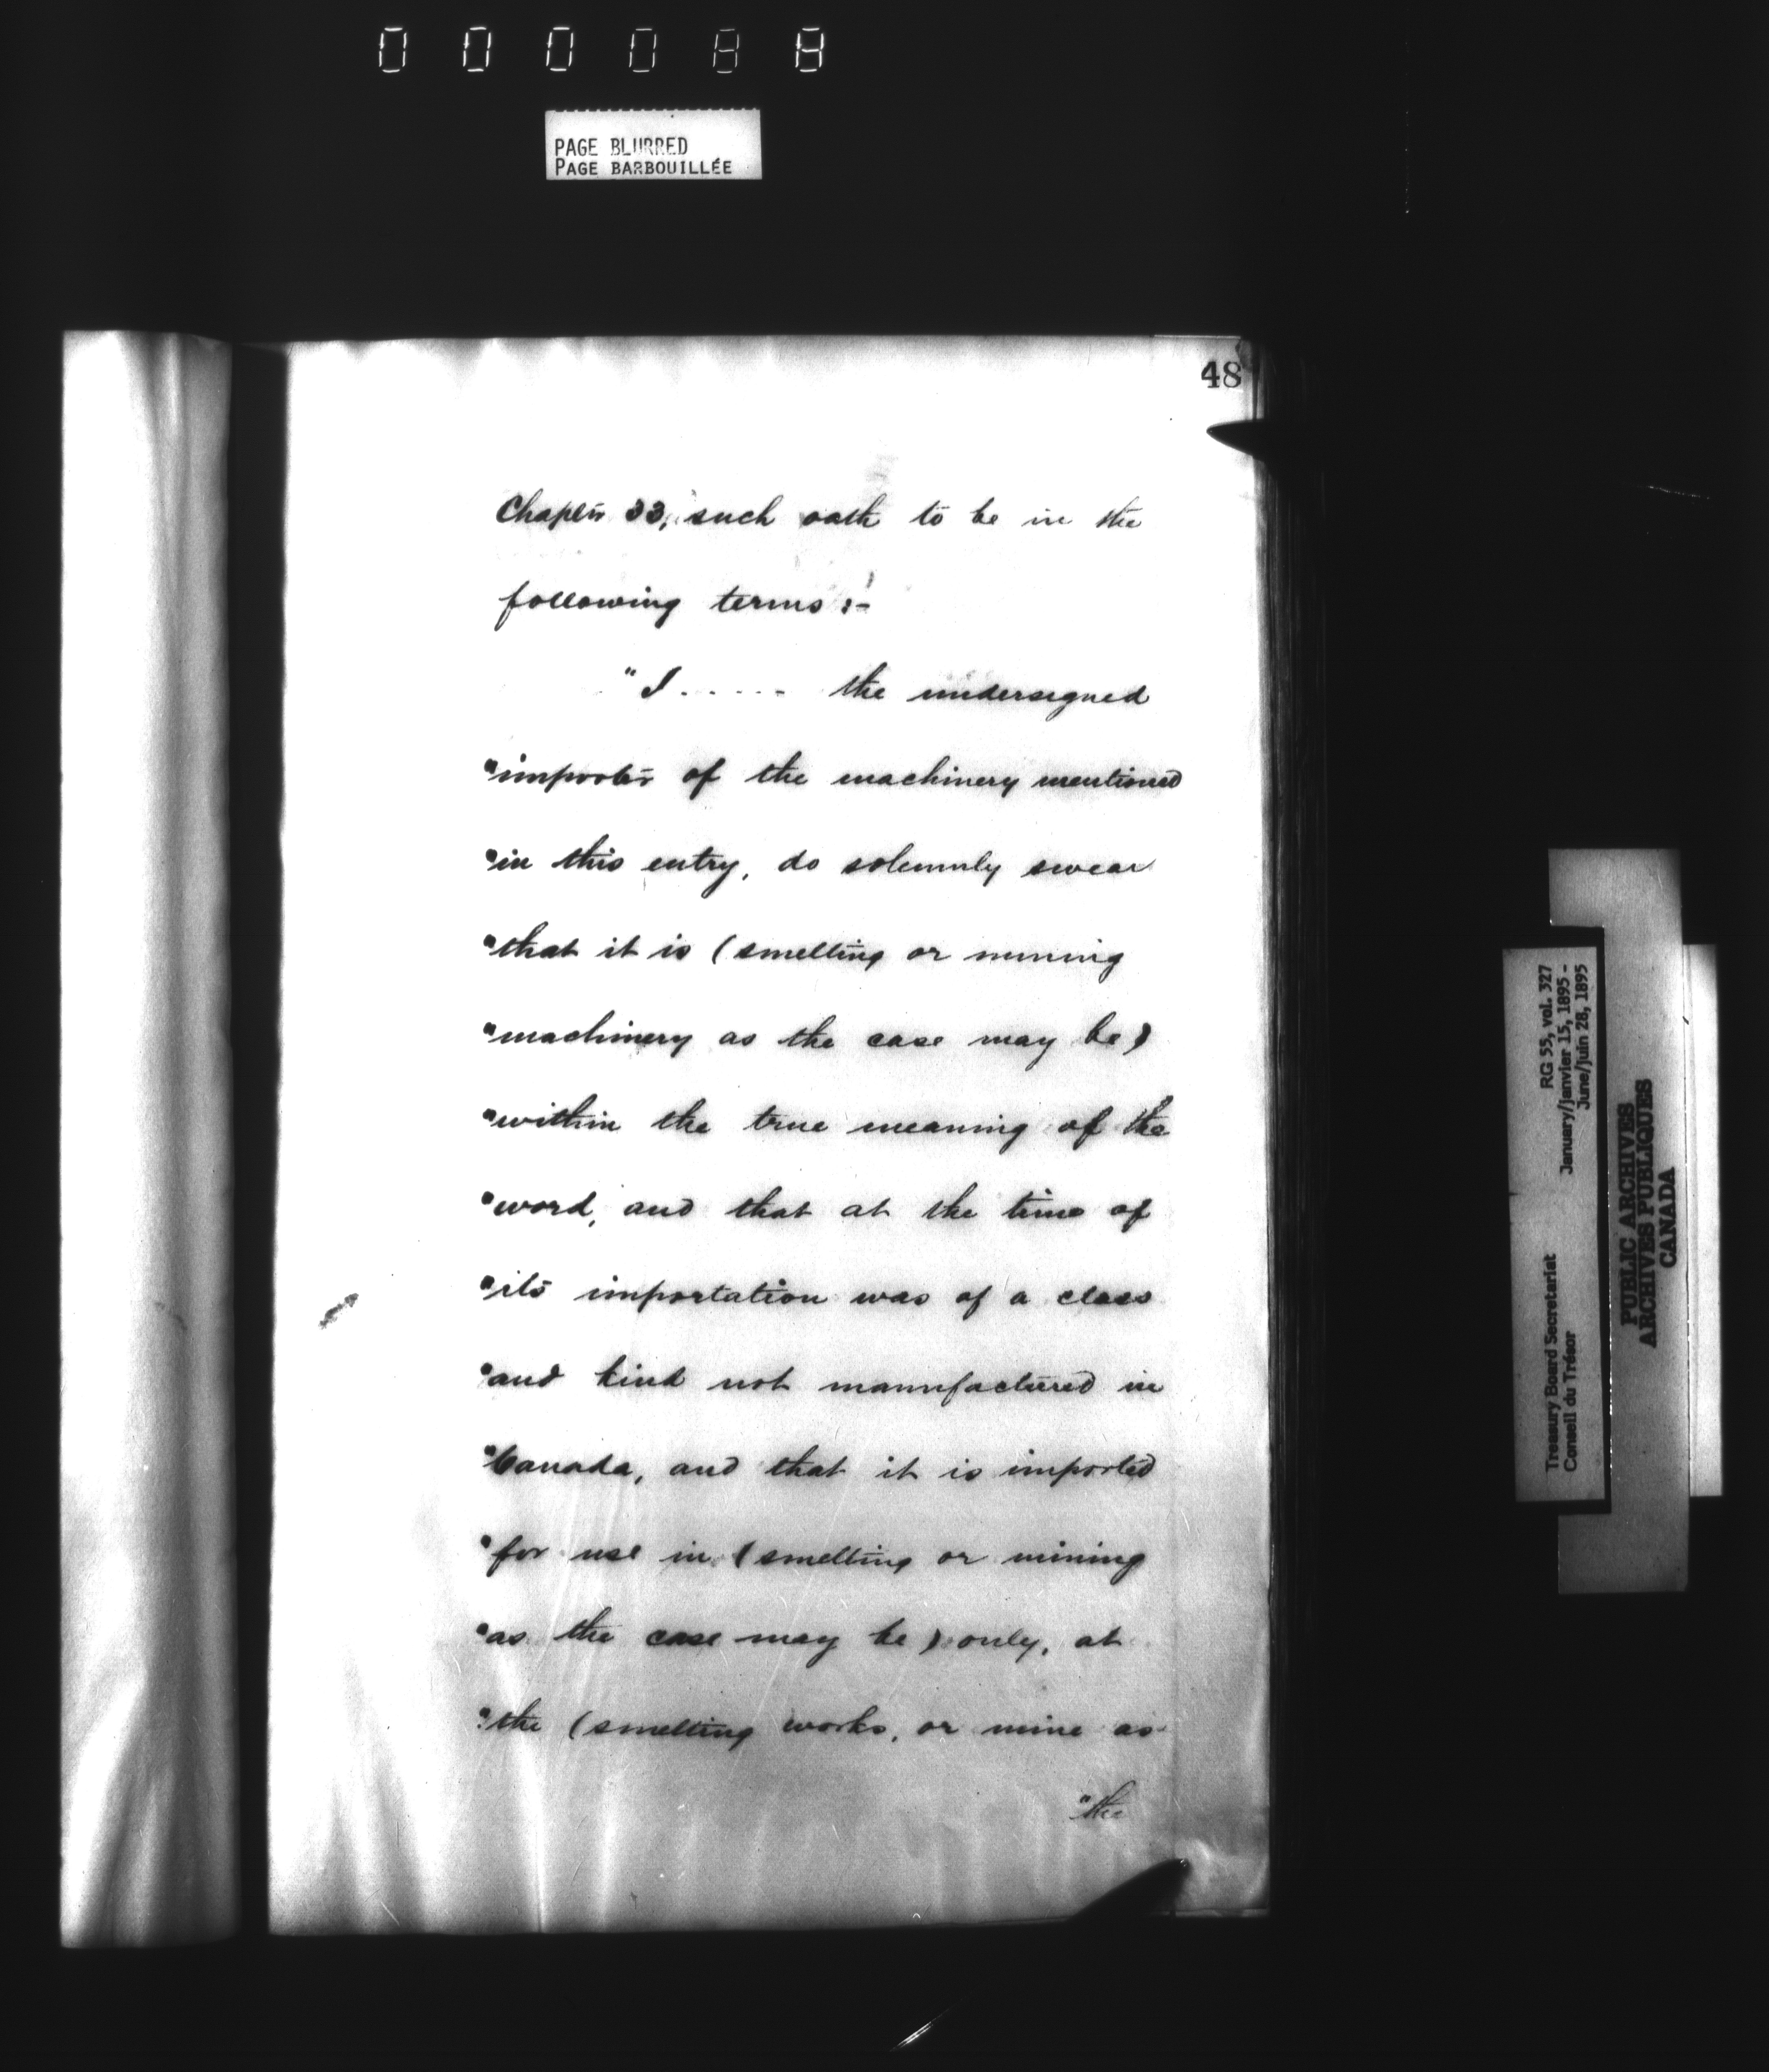 000088
PAGE BLURRED
PAGE BARBOUILLÉE
48
Chapter 33, such oath to be in the
following terms :-
"I ...... the undersigned
"importer of the machinery mentioned
"in this entry, do solemnly swear
"that it is (smelting or mining
"machinery as the case may be)
"within the true meaning of the
"word, and that at the time of
"its importation was of a class
"and kind not manufactured in
"Canada, and that it is imported
"for use in (smelting or mining
"as the case may be) only, at
"the (smelting works, or mine as
"the
Treasury Board Secretariat RG 55, vol. 327
Conseil du Trésor January/janvier 15, 1895 -
June/juin 28, 1895
PUBLIC ARCHIVES
ARCHIVES PUBLIQUES
CANADA